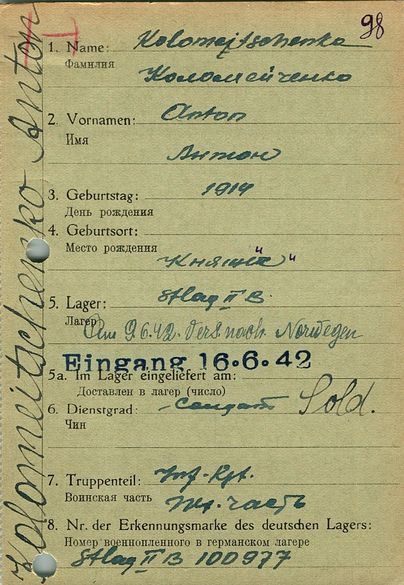 98
Kolomeitschenko Anton
1. Name: Kolomejtschenko
Фамилия
Коломейченко
2. Vornamen: Anton
Имя
Антон
3. Geburtstag: 1914
День рождения
4. Geburtsort:
Место рождения
5. Lager: Stlag II B
Лагерь
Am 9.6.42. Vers. nach Norwegen
Eingang 16.6.42
5a. Im Lager eingeliefert am:
Доставлен в лагерь (число)
6. Dienstgrad: Солдат Sold.
Чин
7. Truppenteil:
Воинская часть
часть
8. Nr. der Erkennungsmarke des deutschen Lagers:
Номер военнопленного в германском лагере
Stlag II B 100977